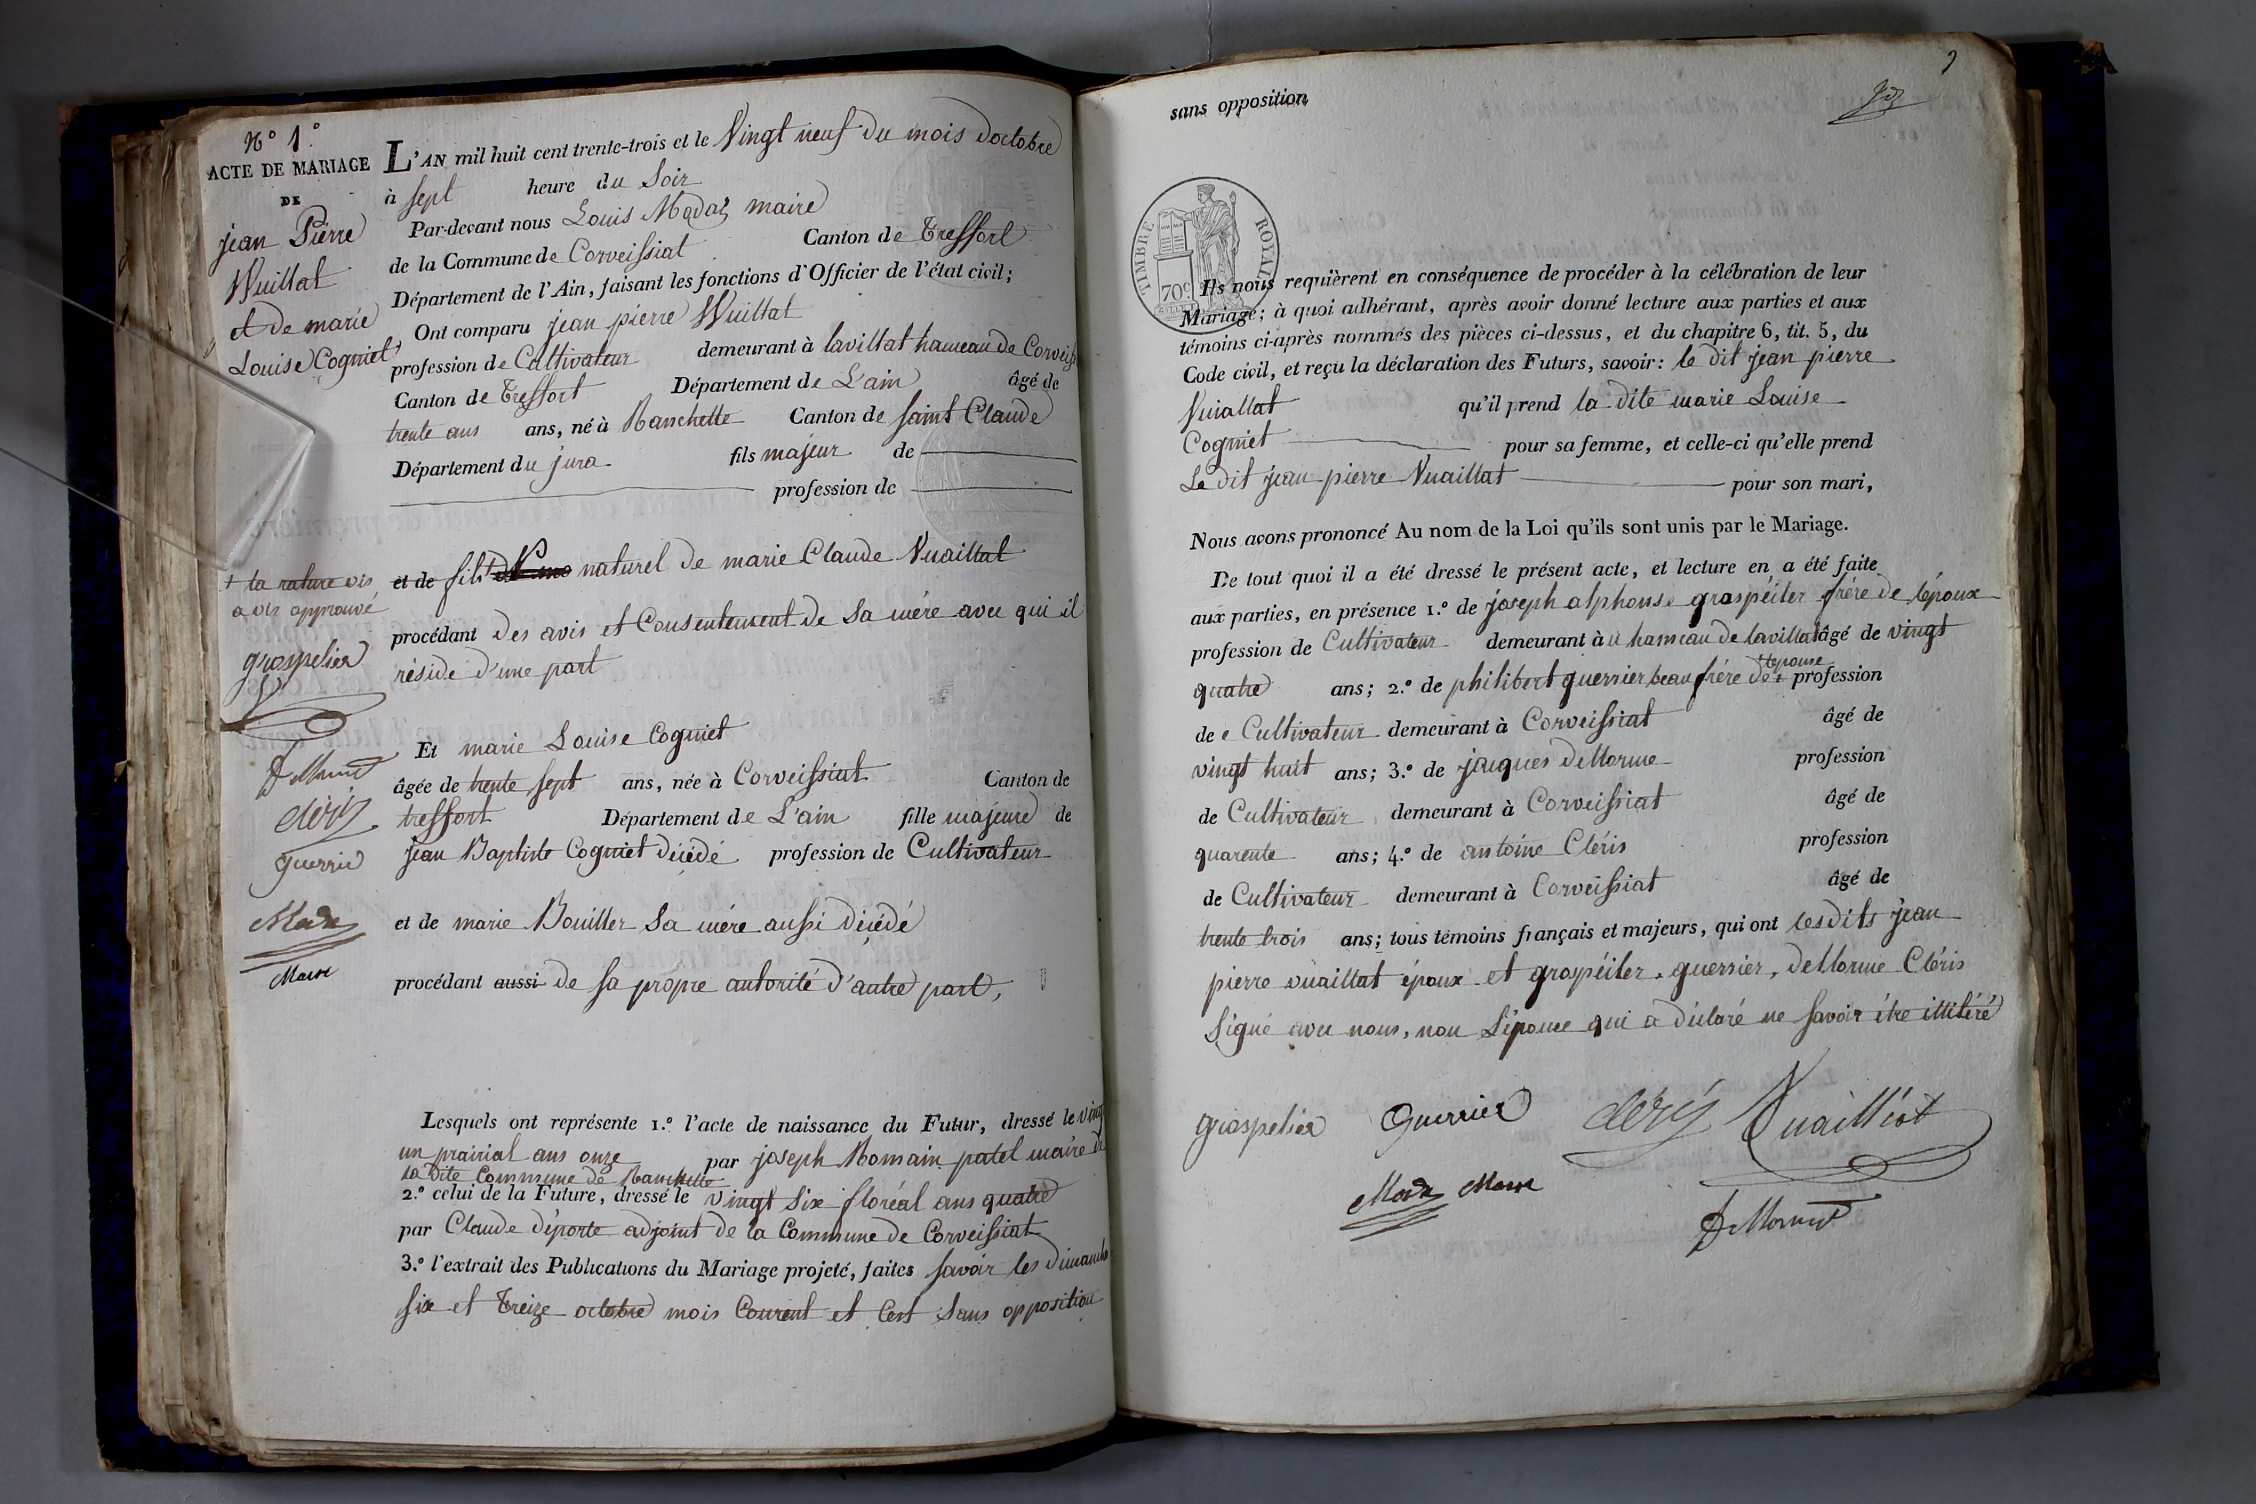 N° 1.°
ACTE DE MARIAGE
DE
jean Pierre
Wuillat
et de marie
Louise Cogniet
L'AN mil huit cent trente-trois et le Vingt neuf du mois doctobre
à sept heure du Soir
Par-devant nous Louis Modaz maire
de la Commune de Corveissiat Canton de Treffort
Département de l'Ain, faisant les fonctions d'Officier de l'état civil;
Ont comparu jean pierre Wuillat
profession de Cultivateur demeurant à lavillat hameau de Corveiss
Canton de Treffort Département de L'ain âgé de
trente ans ans, né à Ranchette Canton de saint Claude
Département du jura fils majeur de
profession de
et de fils naturel de marie Claude Vuaillat
procédant des avis et Consentement de Sa mére avec qui il
réside d'une part
+ la rature vis
a vis approuvé
grospelier
Et marie Louise Cogniet
âgée de trente sept ans, née à Corveissiat Canton de
treffort Département de L'ain fille majeure de
jean Baptiste Cogniet décédé profession de Cultivateur
et de marie Bouiller Sa mére aussi décédé
procédant aussi de sa propre autorité d'autre part,
DeLorme
cléris
Guerrie
Moda
Maire
Lesquels ont représente 1.° l'acte de naissance du Futur, dressé le Vingt
un prairial ans onze par joseph Romain patel maire de
la dite Commune de Ranchette
2.° celui de la Future, dressé le vingt Six floréal ans quatre
par Claude déporte adjoint de la Commune de Corveissiat
3.° l'extrait des Publications du Mariage projeté, faites savoir les dimanche
six et treize octobre mois Courent et Cest Sans opposition
sans opposition
TIMBRE ROYAL
70c
Ils nous requièrent en conséquence de procéder à la célébration de leur
Mariage; à quoi adhérant, après avoir donné lecture aux parties et aux
témoins ci-après nommés des pièces ci-dessus, et du chapitre 6, tit. 5, du
Code civil, et reçu la déclaration des Futurs, savoir: le dit jean pierre
Vuiallat qu'il prend la dite marie Louise
Cogniet pour sa femme, et celle-ci qu'elle prend
Le dit jean pierre Vuaillat pour son mari,
Nous avons prononcé Au nom de la Loi qu'ils sont unis par le Mariage.
De tout quoi il a été dressé le présent acte, et lecture en a été faite
aux parties, en présence 1.° de joseph alphonse grospéiler frére de lépoux
profession de Cultivateur demeurant à u hameau de lavillat âgé de vingt
quatre ans; 2.° de philibert guerrier beau frére de l'épouse profession
de e Cultivateur demeurant à Corveissiat âgé de
vingt huit ans; 3.° de jacques deLlorme profession
de Cultivateur demeurant à Corveissiat âgé de
quarente ans; 4.° de antoine Cléris profession
de Cultivateur demeurant à Corveissiat âgé de
trente trois ans; tous témoins français et majeurs, qui ont lesdits jean
pierre vuaillat époux et grospéiler. guerrier, deLlorme Cléris
Signé avec nous, non L'épouse qui a déclaré ne savoir étre illitéré
grospelier Guerrier cléris Vuailliat
Moda Maire
DeLorme